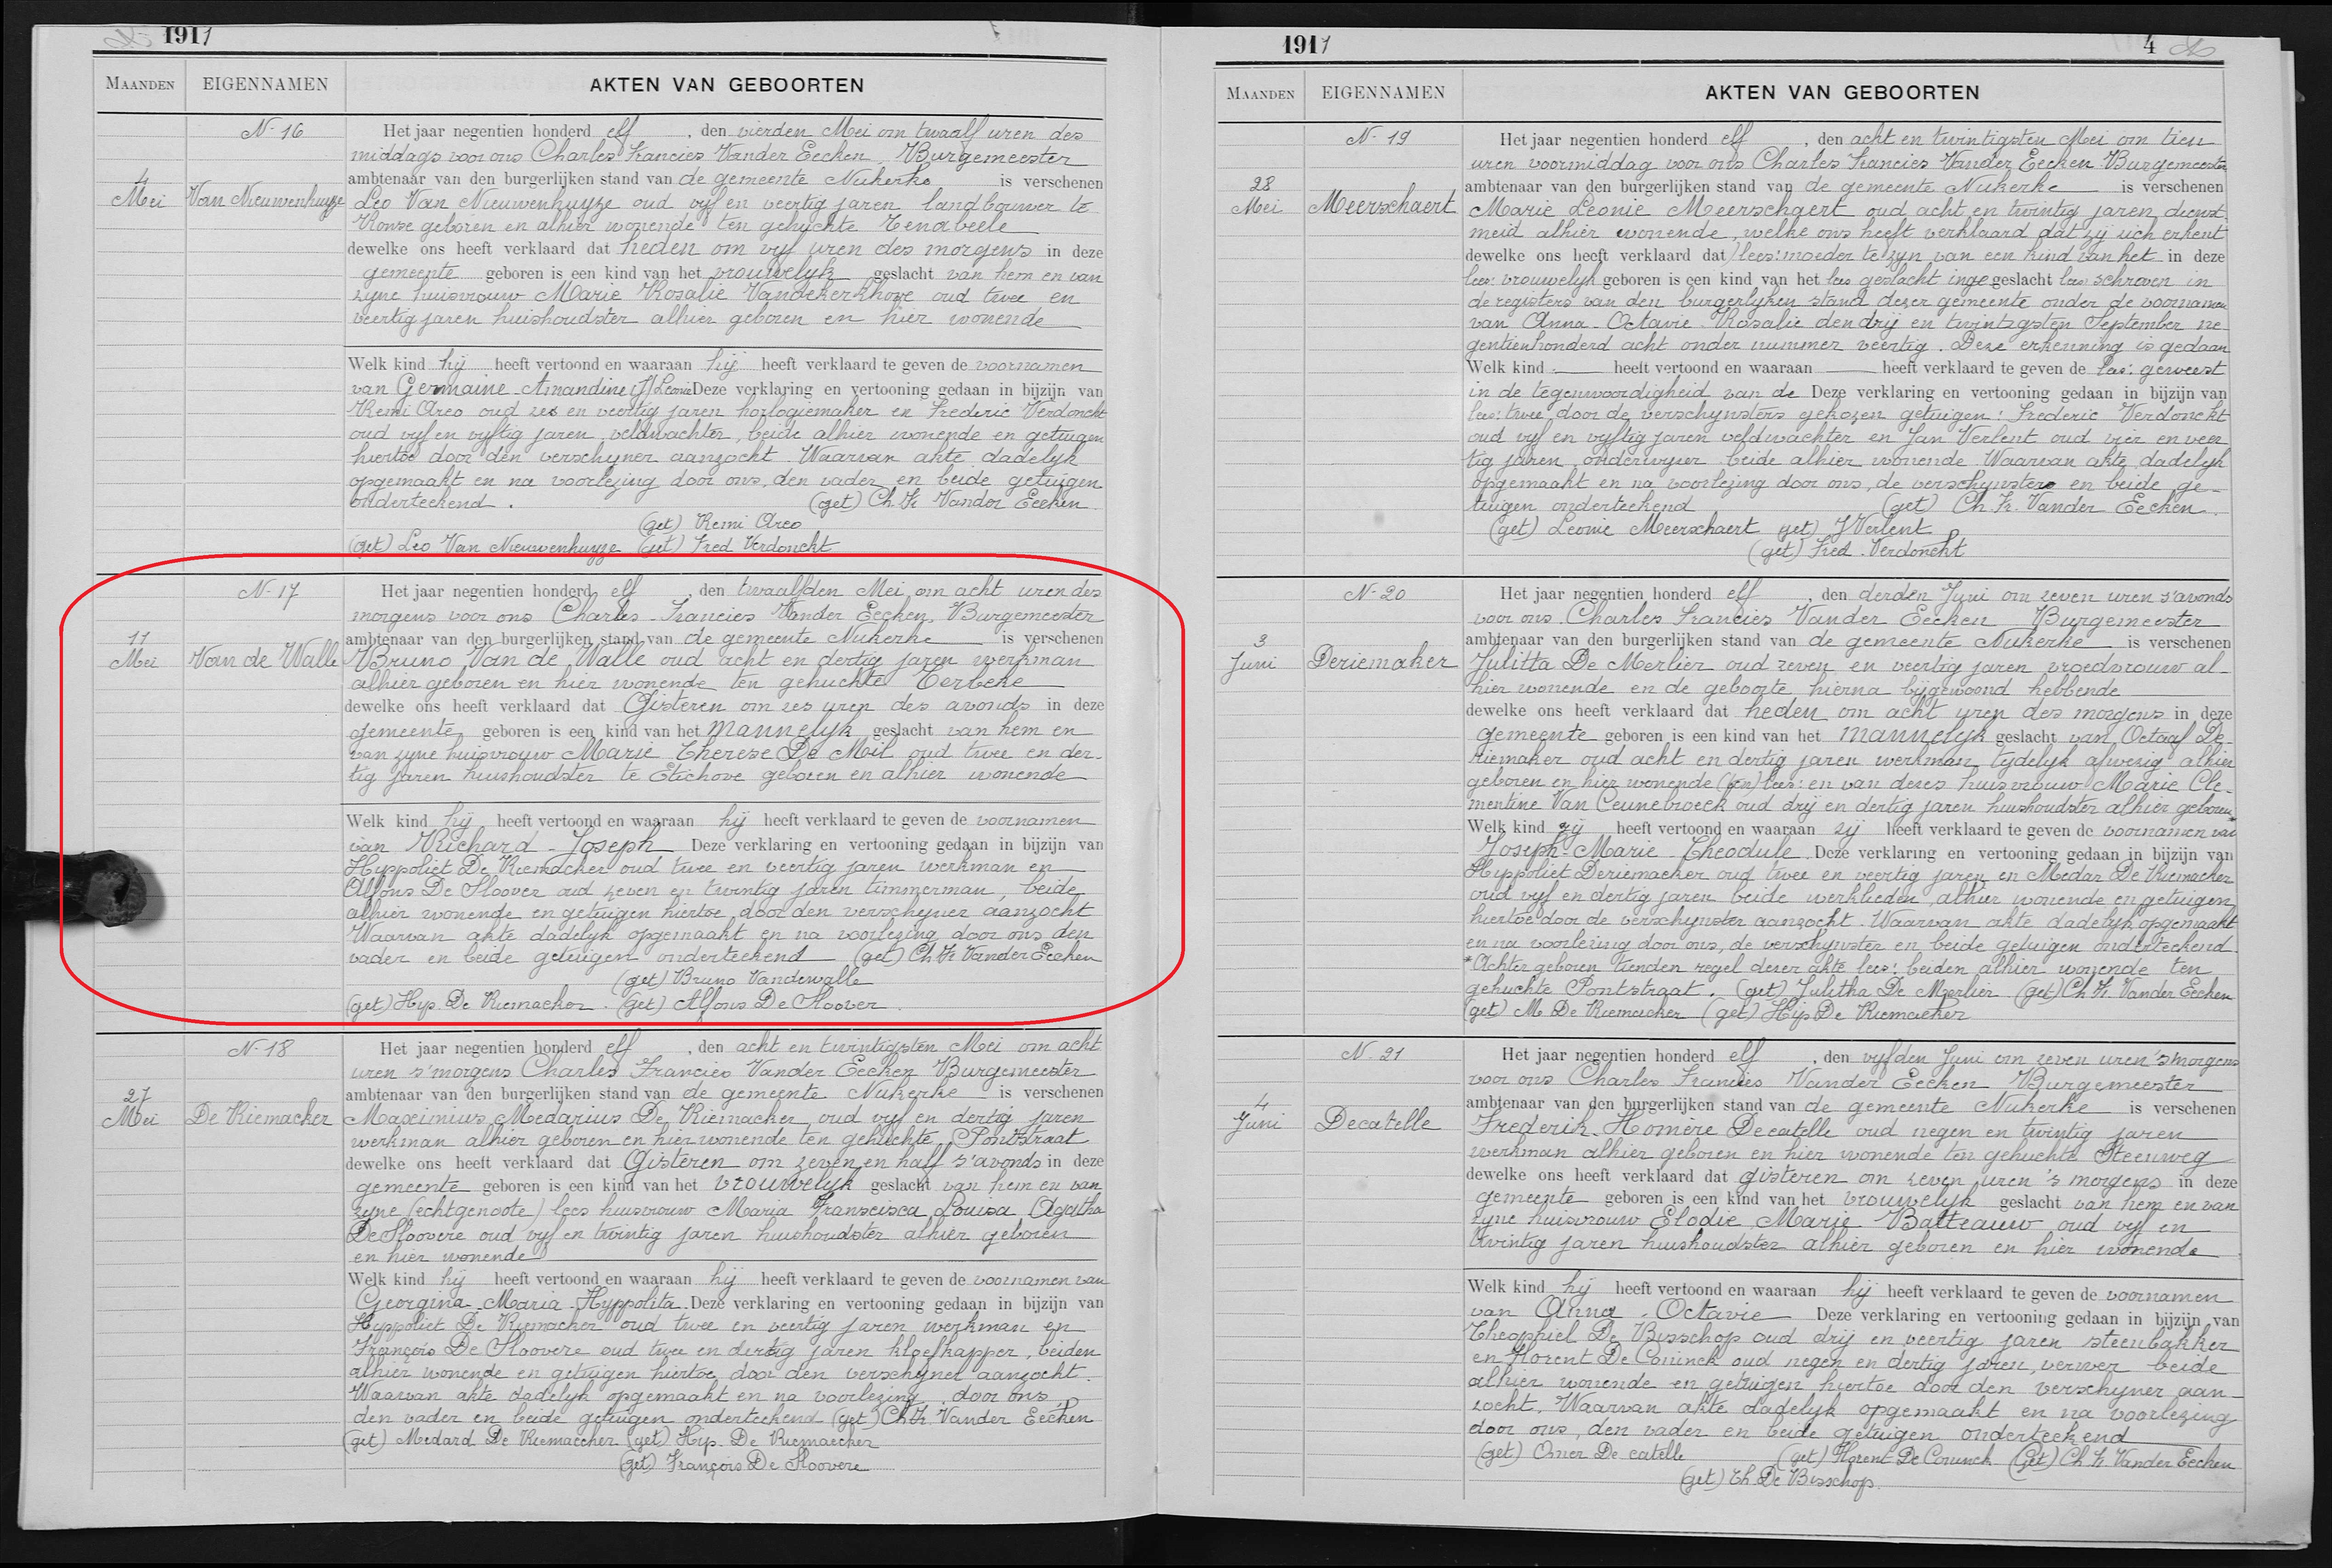 1911
MAANDEN EIGENNAMEN AKTEN VAN GEBOORTEN
N. 16
4
Mei
Van Nieuwenhuyze
Het jaar negentien honderd elf, den vierden Mei om twaalf uren des
middags voor ons Charles Francies Vander Eecken, Burgemeester
ambtenaar van den burgerlijken stand van de gemeente Nukerke is verschenen
Leo Van Nieuwenhuyze oud vyf en veertig jaren landbouwer te
Ronse geboren en alhier wonende ten gehuchte Tenabeele
dewelke ons heeft verklaard dat heden om vyf uren des morgens in deze
gemeente geboren is een kind van het vrouwelyk geslacht van hem en van
zyne huisvrouw Marie Rosalie Vandekerkhove oud twee en
veertig jaren huishoudster alhier geboren en hier wonende
Welk kind hij heeft vertoond en waaraan hij heeft verklaard te geven de voornamen
van Germaine-Amandine Leonie Deze verklaring en vertooning gedaan in bijzijn van
Remi Areo oud zes en veertig jaren horlogiemaker en Frederic Verdonckt
oud vyf en vyftig jaren, veldwachter, beide alhier wonende en getuigen
hiertoe door den verschyner aanzocht. Waarvan akte dadelyk
opgemaakt en na voorlezing door ons, den vader en beide getuigen
onderteekend. (get) Ch. Fr. Vander Eecken
(get) Remi Areo
(get) Leo Van Nieuwenhuyze (get) Fred Verdonckt
N. 17
11
Mei
Van de Walle
Het jaar negentien honderd elf, den twaalfden Mei om acht uren des
morgens voor ons Charles-Francies Vander Eecken, Burgemeester
ambtenaar van den burgerlijken stand van de gemeente Nukerke is verschenen
Bruno Van de Walle oud acht en dertig jaren werkman
alhier geboren en hier wonende ten gehuchte Terbeke
dewelke ons heeft verklaard dat Gisteren om zes uren des avonds in deze
gemeente geboren is een kind van het mannelyk geslacht van hem en
van zyne huisvrouw Marie Therese De Meil oud twee en der-
tig jaren huishoudster te Etichove geboren en alhier wonende
Welk kind hij heeft vertoond en waaraan hij heeft verklaard te geven de voornamen
van Richard-Joseph Deze verklaring en vertooning gedaan in bijzijn van
Hyppoliet De Riemacker oud twee en veertig jaren werkman en
Alfons De Sloover oud zeven en twintig jaren timmerman, beide
alhier wonende en getuigen hiertoe door den verschyner aanzocht
Waarvan akte dadelyk opgemaakt en na voorlezing door ons den
vader en beide getuigen onderteekend (get) Ch. Fr. Vander Eecken
(get) Bruno Vandewalle
(get) Hyp. De Riemacker. (get) Alfons De Sloover.
N. 18
27
Mei
De Riemacker
Het jaar negentien honderd elf, den acht en twintigsten Mei om acht
uren s'morgens Charles Francies Vander Eecken Burgemeester
ambtenaar van den burgerlijken stand van de gemeente Nukerke is verschenen
Maximius Medarius De Riemacker oud vyf en dertig jaren
werkman alhier geboren en hier wonende ten gehuchte Pontstraat
dewelke ons heeft verklaard dat Gisteren om zeven en half s'avonds in deze
gemeente geboren is een kind van het vrouwelyk geslacht van hem en van
zyne (echtgenoote) lees huisvrouw Maria Franscisca Louisa Agatha
De Sloovere oud vyf en twintig jaren huishoudster alhier geboren
en hier wonende
Welk kind hij heeft vertoond en waaraan hij heeft verklaard te geven de voornamen van
Georgina-Maria-Hyppolita. Deze verklaring en vertooning gedaan in bijzijn van
Hyppoliet De Riemacker oud twee en veertig jaren werkman en
François De Sloovere oud twee en dertig jaren kloefkapper, beiden
alhier wonende en getuigen hiertoe door den verschyner aanzocht.
Waarvan akte dadelyk opgemaakt en na voorlezing door ons,
den vader en beide getuigen onderteekend (get) Ch. Fr. Vander Eecken
(get) Medard De Riemaecker (get) Hyp. De Riemaecker
(get) François De Sloovere
1911 4
MAANDEN EIGENNAMEN AKTEN VAN GEBOORTEN
N. 19
28
Mei
Meerschaert
Het jaar negentien honderd elf, den acht en twintigsten Mei om tien
uren voormiddag voor ons Charles Francies Vander Eecken Burgemeester
ambtenaar van den burgerlijken stand van de gemeente Nukerke is verschenen
Marie Leonie Meerschaert oud acht en twintig jaren dienst-
meid alhier wonende, welke ons heeft verklaard dat zy zich erkent
dewelke ons heeft verklaard dat lees: moeder te zyn van een kind van het in deze
lees: vrouwelyk geboren is een kind van het lees geslacht inge geslacht lees schreven in
de registers van den burgerlyken stand dezer gemeente onder de voornamen
van Anna-Octavie-Rosalie den drij en twintigsten September ne-
gentienhonderd acht onder nummer veertig. Deze erkenning is gedaan
Welk kind heeft vertoond en waaraan heeft verklaard te geven de lees: geweest
in de tegenwoordigheid van de Deze verklaring en vertooning gedaan in bijzijn van
lees: twee door de verschynsters gekozen getuigen: Frederic Verdonckt
oud vyf en vyftig jaren veldwachter en Jan Verlent oud vier en veer
tig jaren onderwyzer beide alhier wonende Waarvan akte dadelyk
opgemaakt en na voorlezing door ons, de verschynster en beide ge-
tuigen onderteekend (get) Ch. Fr. Vander Eecken.
(get) Leonie Meerschaert (get) J Verlent
(get) Fred. Verdonckt
N. 20
3
Juni
Deriemaker
Het jaar negentien honderd elf, den derden Juni om zeven uren s'avonds
voor ons Charles Francies Vander Eecken Burgemeester
ambtenaar van den burgerlijken stand van de gemeente Nukerke is verschenen
Julitta De Merlier oud zeven en veertig jaren vroedvrouw al-
hier wonende en de geboorte hierna bijgewoond hebbende
dewelke ons heeft verklaard dat heden om acht uren des morgens in deze
gemeente geboren is een kind van het mannelyk geslacht van Octaaf De-
riemaker oud acht en dertig jaren werkman tydelyk afwezig alhier
geboren en hier wonende (ten) lees: en van deres huisvrouw Marie Cle-
mentine Van Ceunebroeck oud drij en dertig jaren huishoudster alhier geboren*
Welk kind zij heeft vertoond en waaraan zij heeft verklaard te geven de voornamen van
Joseph-Marie Theodule Deze verklaring en vertooning gedaan in bijzijn van
Hyppoliet Deriemacker oud twee en veertig jaren en Medar De Riemacker
oud vyf en dertig jaren beide werklieden, alhier wonende en getuigen
hiertoe door de verschynster aanzocht. Waarvan akte dadelyk opgemaakt
en na voorlezing door ons, de verschynster en beide getuigen onderteekend.
*Achter geboren tienden regel dezer akte lees: beiden alhier wonende ten
gehuchte Pontstraat. (get) Julitha De Merlier (get) Ch. Fr. Vander Eecken
(get) M De Riemacker (get) Hyp De Riemacker
N. 21
4
Juni
Decatelle
Het jaar negentien honderd elf, den vyfden Juni om zeven uren 's morgens
voor ons Charles Francies Vander Eecken Burgemeester
ambtenaar van den burgerlijken stand van de gemeente Nukerke is verschenen
Frederik-Homère Decatelle oud negen en twintig jaren
werkman alhier geboren en hier wonende ten gehuchte Steenweg
dewelke ons heeft verklaard dat gisteren om zeven uren 's morgens in deze
gemeente geboren is een kind van het vrouwelyk geslacht van hem en van
zyne huisvrouw Elodie Marie Batteauw oud vyf en
twintig jaren huishoudster alhier geboren en hier wonende
Welk kind hij heeft vertoond en waaraan hij heeft verklaard te geven de voornamen
van Anna-Octavie Deze verklaring en vertooning gedaan in bijzijn van
Theophiel De Bisschop oud drij en veertig jaren steenbakker
en Florent De Coninck oud negen en dertig jaren, verwer beide
alhier wonende en getuigen hiertoe door den verschyner aan-
zocht. Waarvan akte dadelyk opgemaakt en na voorlezing
door ons, den vader en beide getuigen onderteekend
(get) Omer De catelle (get) Florent De Coninck (get) Ch. Fr. Vander Eecken
(get) Th De Bisschop.